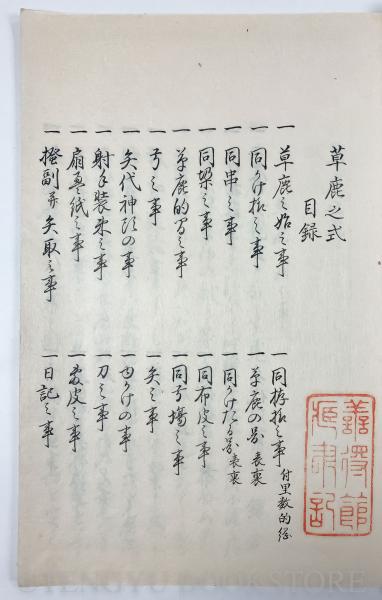 草鹿之式
目録
一 草鹿之始之事
一 同かけ振之事
一 同串之事
一 同之事
一 草鹿的間之事
一 弓之事
一 矢代神頭の事
一 射手装束之事
一 扇畳紙之事
一 掻副并矢取之事
一 同拵振之事 付里数的
一 草鹿の図 表裏
一 同かけたる図 表裏
一 同布皮之事
一 同弓場之事
一 矢之事
一 ゆかけの事
一 刀之事
一 皮之事
一 日記之事
BOOKSTORE